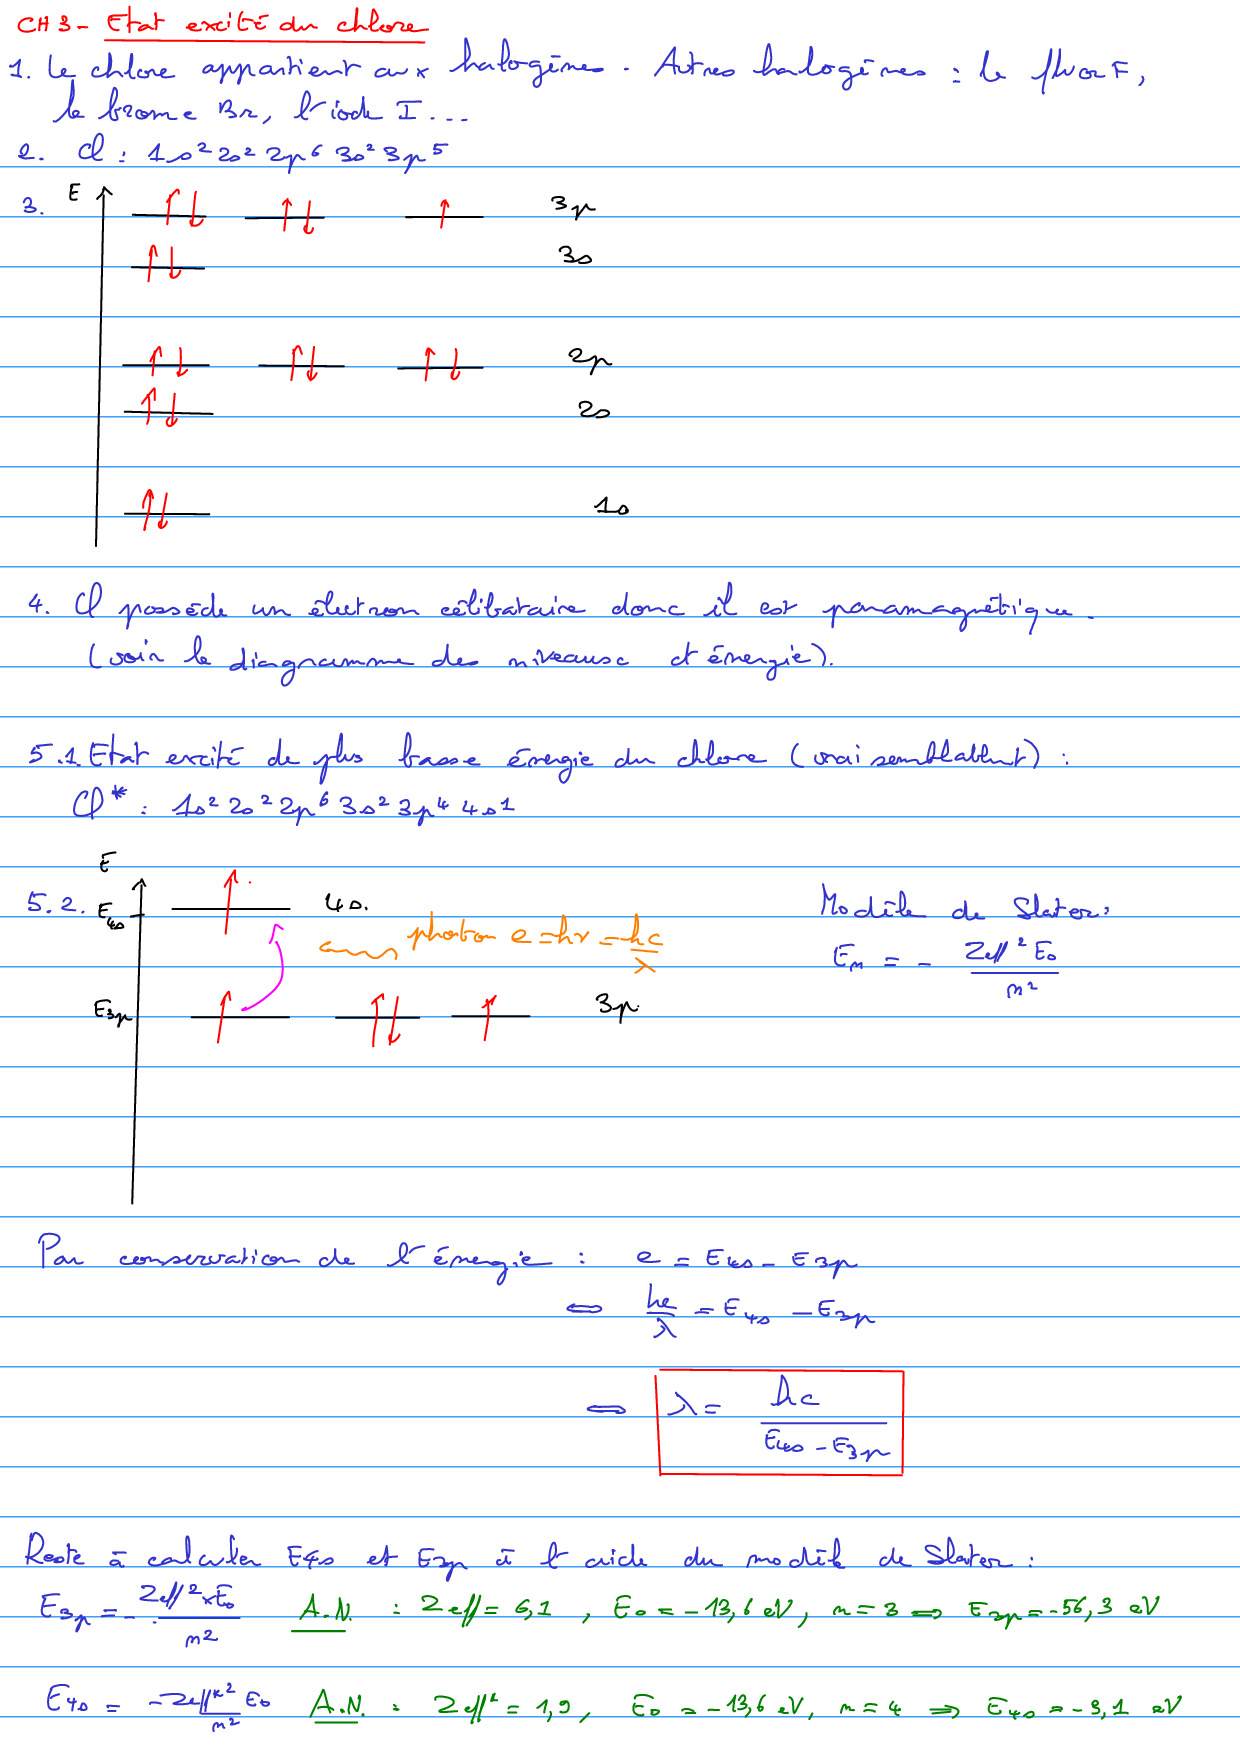 CH3 - Etat excité du chlore
1. Le chlore appartient aux halogènes. Autres halogènes : le fluor F,
le brome Br, l'iode I...
2. Cl : 1s² 2s² 2p⁶ 3s² 3p⁵
3. E ↑↓ ↑↓ ↑ 3p
↑↓ 3s
↑↓ ↑↓ ↑↓ 2p
↑↓ 2s
↑↓ 1s
4. Cl possède un électron célibataire donc il est paramagnétique.
(voir le diagramme des niveaux d'énergie).
5.1. Etat excité de plus basse énergie du chlore (vraisemblablemt) :
Cl* : 1s² 2s² 2p⁶ 3s² 3p⁴ 4s¹
E
5.2. E4s ↑ 4s. Modèle de Slater,
photon e = hν = hc/λ En = - Zeff² E0/n²
E3p ↑ ↑↓ ↑ 3p.
Par conservation de l'énergie : e = E4s - E3p
⇔ hc/λ = E4s - E3p
⇔ λ = hc/(E4s - E3p)
Reste à calculer E4s et E3p à l'aide du modèle de Slater :
E3p = - Zeff² × E0/n² A.N. : Zeff = 6,1 , E0 = -13,6 eV, n = 3 ⇔ E3p = -56,3 eV
E4s = -Zeff*² E0/n² A.N. : Zeff* = 1,9, E0 = -13,6 eV, n = 4 ⇒ E4s = -3,1 eV